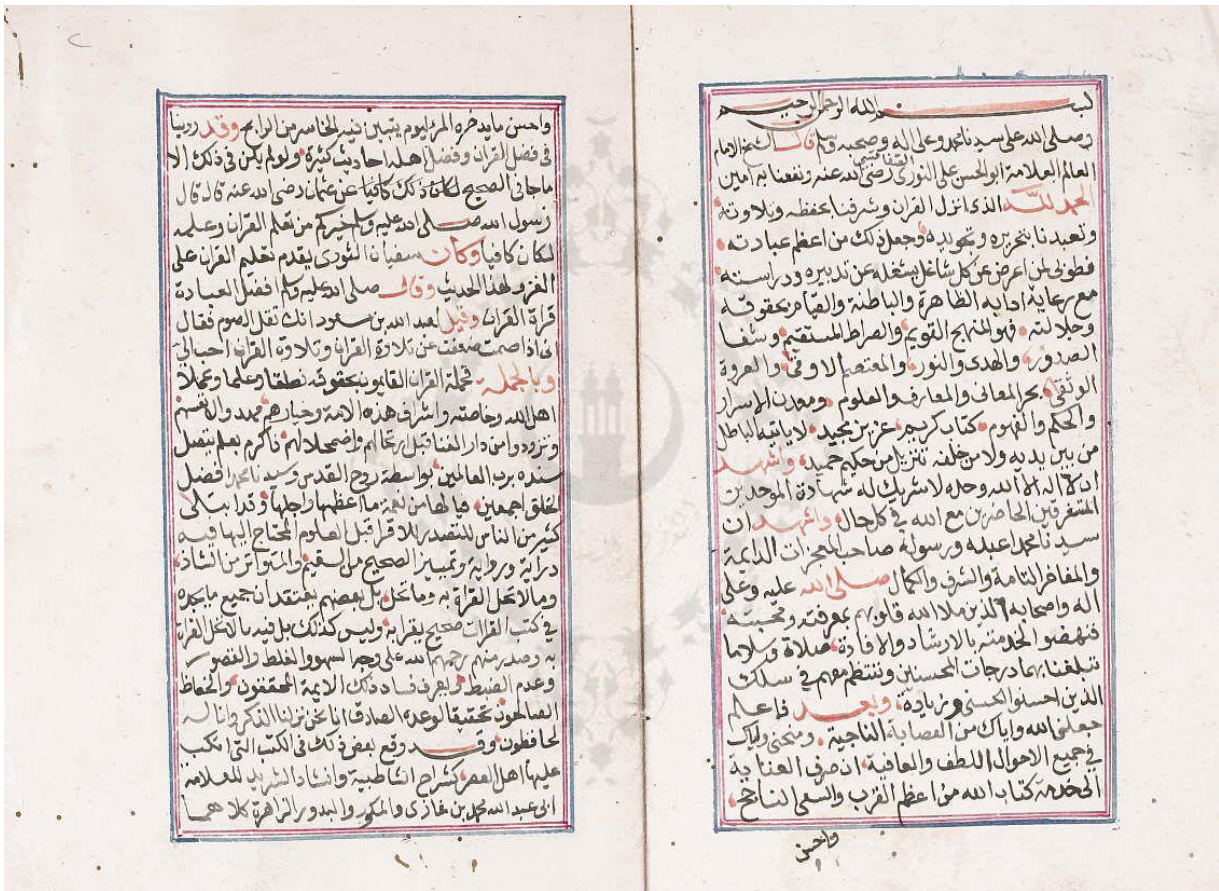 بسم الله الرحمن الرحيم
وصلى الله على سيدنا محمد وعلى اله وصحبه وسلم قال الشيخ الامام
العالم العلامة ابو الحسن على النورى الصفاقسى رضى الله عنه ونفعنا به امين
الحمد لله الذى انزل القران وشرفنا بحفظه وتلاوته
وتعبدنا بتحريره وتجويده وجعل ذلك من اعظم عبادته
فطوبى لمن اعرض عن كل شاغل يشغله عن تدبيره ودراسته
مع رعاية ادابه الظاهرة والباطنة والقيام بحقوقه
وجلالته فهو المنهج القويم والصراط المستقيم وشفا
الصدور والهدى والنور والمعتصم الاوفى والعروة
الوثقى بحر المعانى والمعارف والعلوم ومعدن الاسرار
والحكم والفهوم كتاب كريم عزيز مجيد لا ياتيه الباطل
من بين يديه ولا من خلفه تنزيل من حكيم حميد واشهد
ان لا اله الا الله وحده لا شريك له شهادة الموحدين
المتفرقين الحاضرين مع الله في كل حال واشهد ان
سيدنا محمدا عبده ورسوله صاحب المعجزات الدايمة
والمفاخر التامة والشرف والكمال صلى الله عليه وعلى
اله واصحابه الذين ملا الله قلوبهم بمعرفته ومحبته
فنهضوا لخدمته بالارشاد والافادة صلاة وسلاما
تبلغنا بهما درجات المحسنين وننتظم معهم في سلك
الذين احسنوا الحسنى وزيادة وبعد فاعلم
جعلنى الله واياك من العصابة الناجية ومنحنى واياك
في جميع الاحوال اللطف والعافية ان صرف العناية
الى خدمة كتاب الله من اعظم القرب والسعى الناجح
واحسن
واحسن ما يدخره المرء ليوم يتبين فيه الخاسر من الرابح وقد روينا
فى فضل القران وفضل اهله احاديث كثيرة ولو لم يكن فى ذلك الا
ما جا فى الصحيح لكان ذلك كافيا عن عثمان رضى الله عنه قال قال
رسول الله صلى الله عليه وسلم خيركم من تعلم القران وعلمه
لكان كافيا وكان سفيان الثورى يقدم تعليم القران على
الغزو لهذا الحديث وقال صلى الله عليه وسلم افضل العبادة
قراة القران وقيل لعبد الله بن مسعود انك تقل الصوم فقال
انى اذا صمت ضعفت عن تلاوة القران وتلاوة القران احب الى
وبالجملة فحملة القران القايمون بحقوقه نطقا وعلما وعملا
اهل الله وخاصته واشراف هذه الامة وخيارهم
وتزودوا من دار الفنا قبل ارتحالهم واضمحلالهم فاكرم بعلم يتصل
سنده برب العالمين بواسطة روح القدس وسيدنا محمد افضل
الخلق اجمعين فيا لها من نعمة ما اعظمها واجلها وقد ابتلى
كثير من الناس للتصدر للاقرا قبل العلوم المحتاج اليها فيه
دراية ورواية وتمييز الصحيح من السقيم والمتواتر من الشاذ
وما لا تحل القراة به وما تحل بل بعضهم يعتقد ان جميع ما يجده
في كتب القراات صحيح يقرا به وليس كذلك بل فيه ما لا تحل القراة
به وصدر منهم رحمهم الله على وجه السهو والغلط والقصور
وعدم الضبط ويعرف فساد ذلك الايمة المحققون والحفاظ
الضابطون تحقيقا لوعده الصادق انا نحن نزلنا الذكر وانا له
لحافظون وقد وقع بعض ذلك فى الكتب التى انكب
عليها اهل العصر كشراح الشاطبية وانشاد الشريد للعلامة
ابى عبد الله محمد بن غازى والمكرر والبدور الزاهرة كلاهما